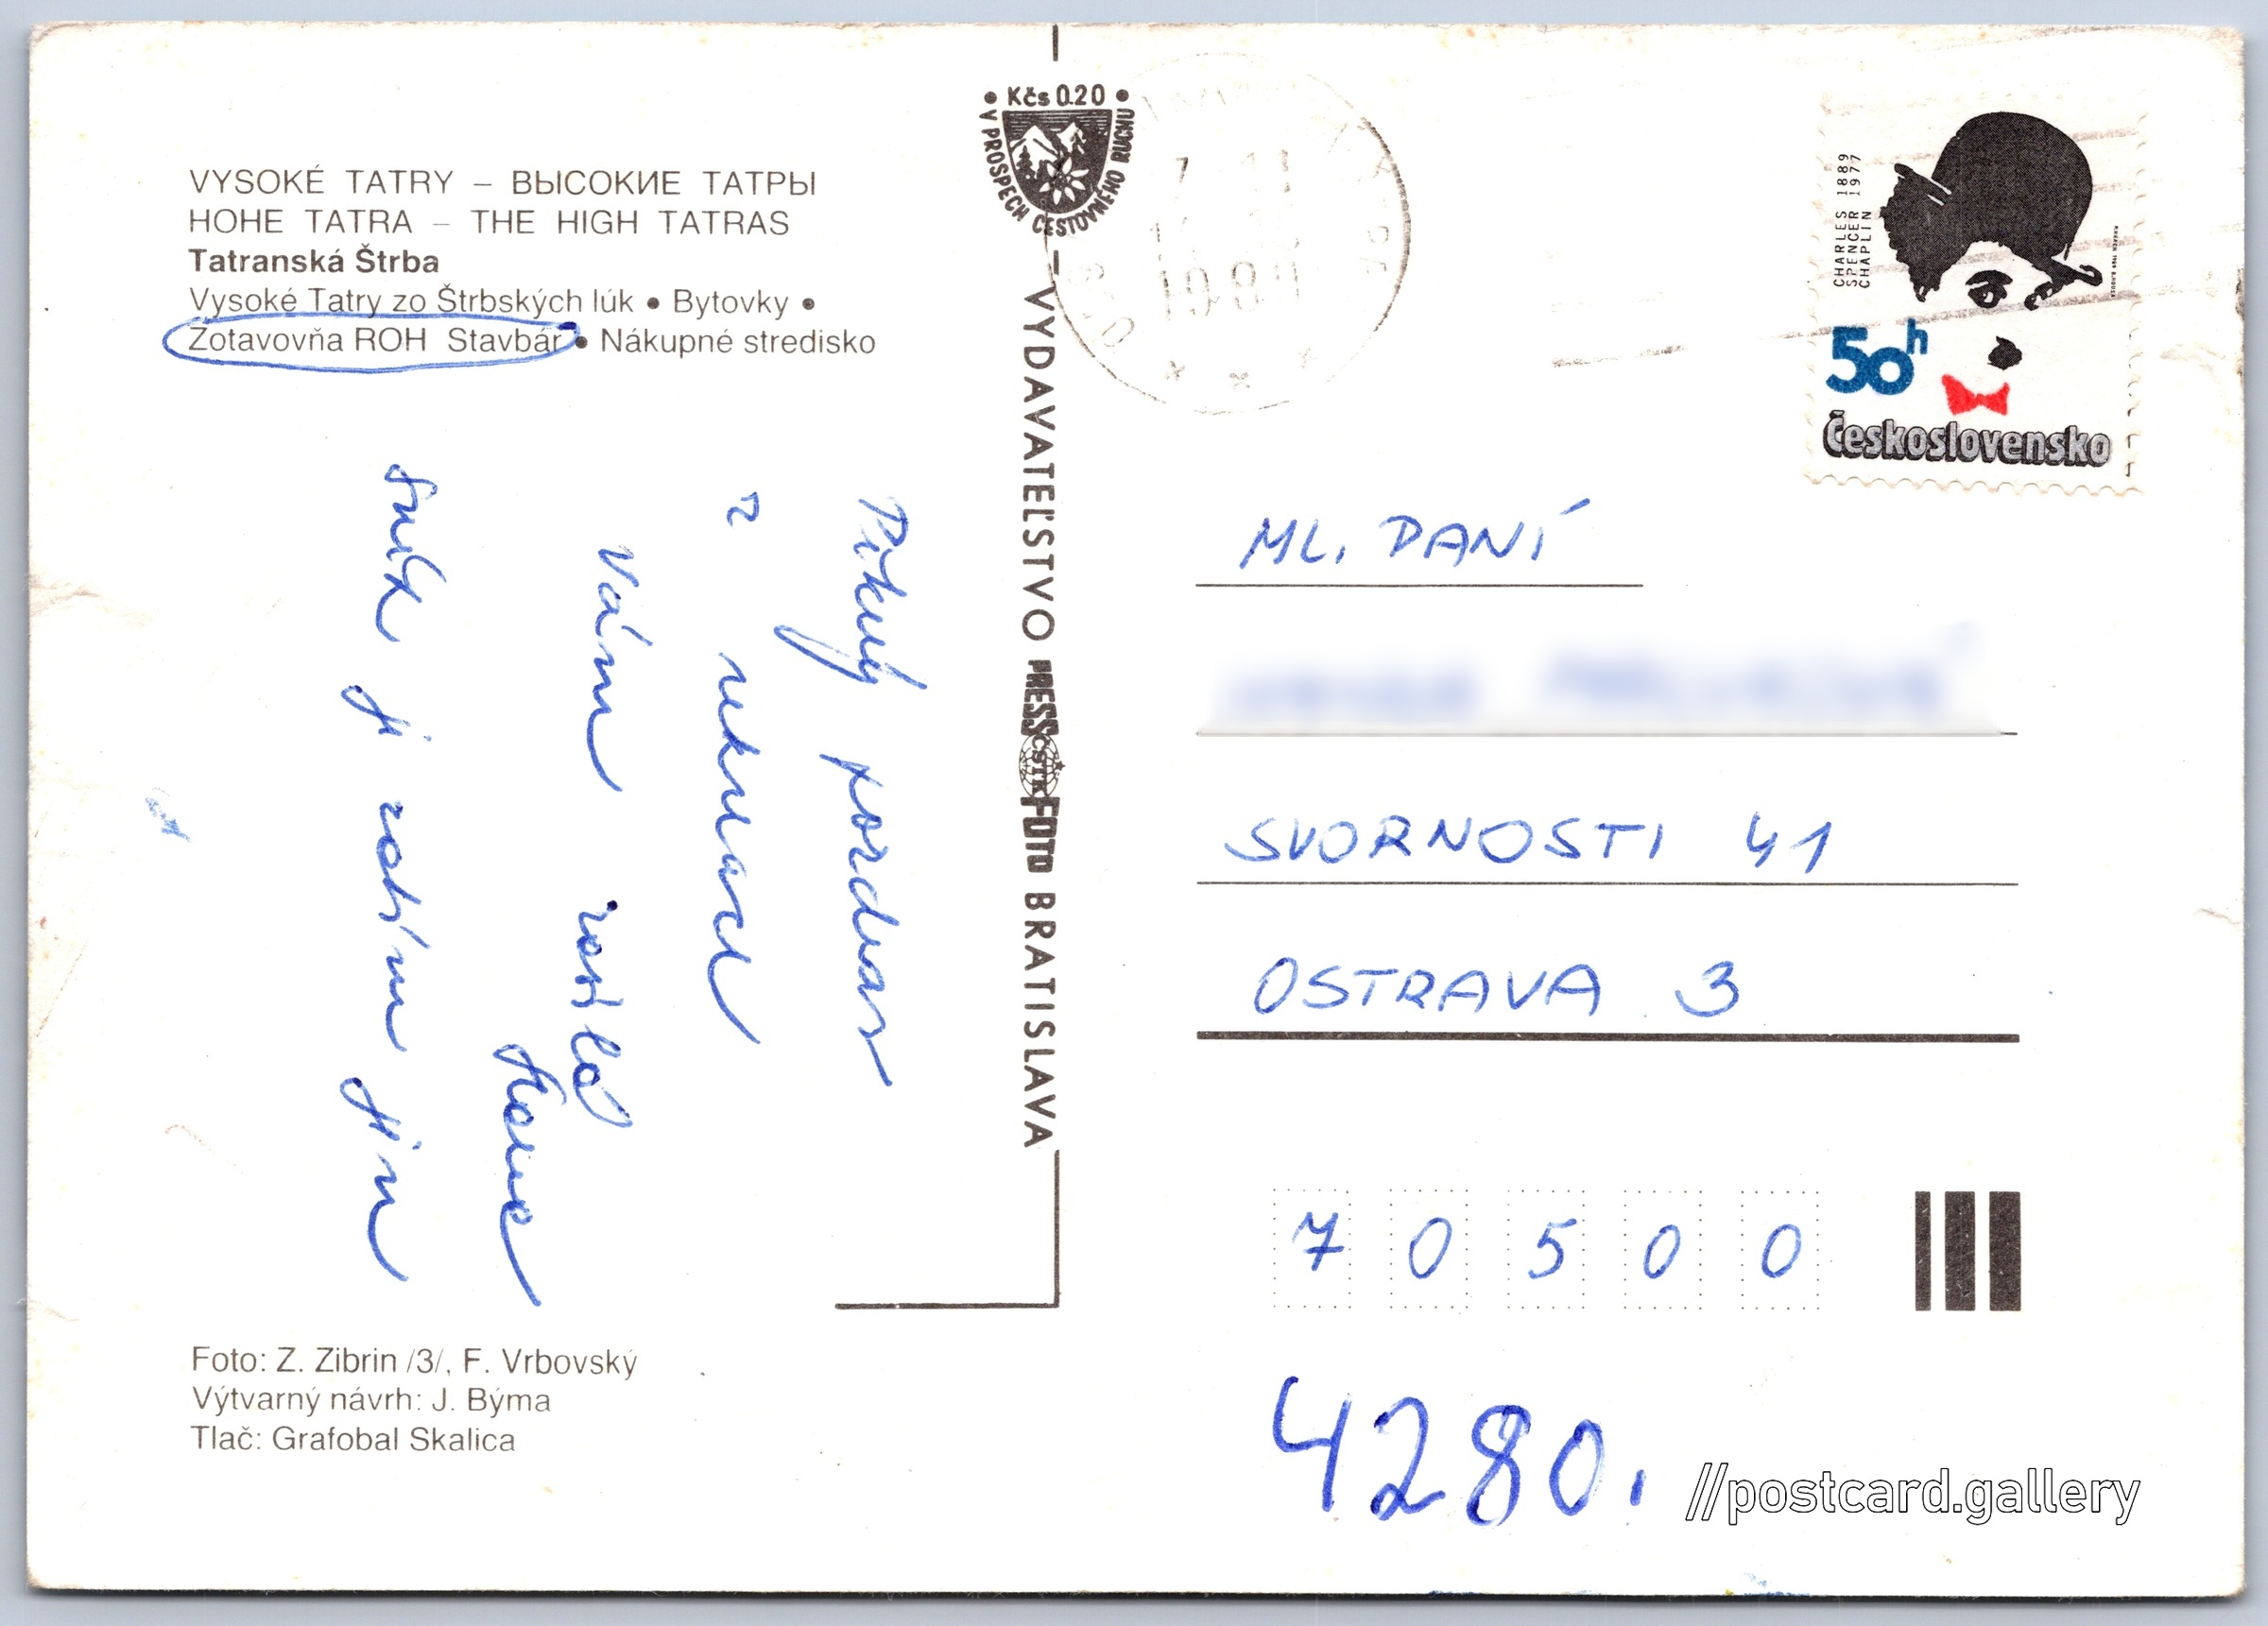 VYSOKÉ TATRY – ВЫСОКИЕ ТАТРЫ
HOHE TATRA – THE HIGH TATRAS
Tatranská Štrba
Vysoké Tatry zo Štrbských lúk • Bytovky •
Zotavovňa ROH Stavbár • Nákupné stredisko
Pěkný pozdrav
z rekreace
Vám
Foto: Z. Zibrin /3/, F. Vrbovský
Výtvarný návrh: J. Býma
Tlač: Grafobal Skalica
• Kčs 0.20 •
V PROSPECH CESTOVNÉHO RUCHU
VYDAVATEĽSTVO PRESSFOTO BRATISLAVA
ČSTK
1989
CHARLES 1889
SPENCER 1977
CHAPLIN
50h
Československo
ML. PANÍ
SVORNOSTI 41
OSTRAVA 3
70500
4280.
//postcard.gallery